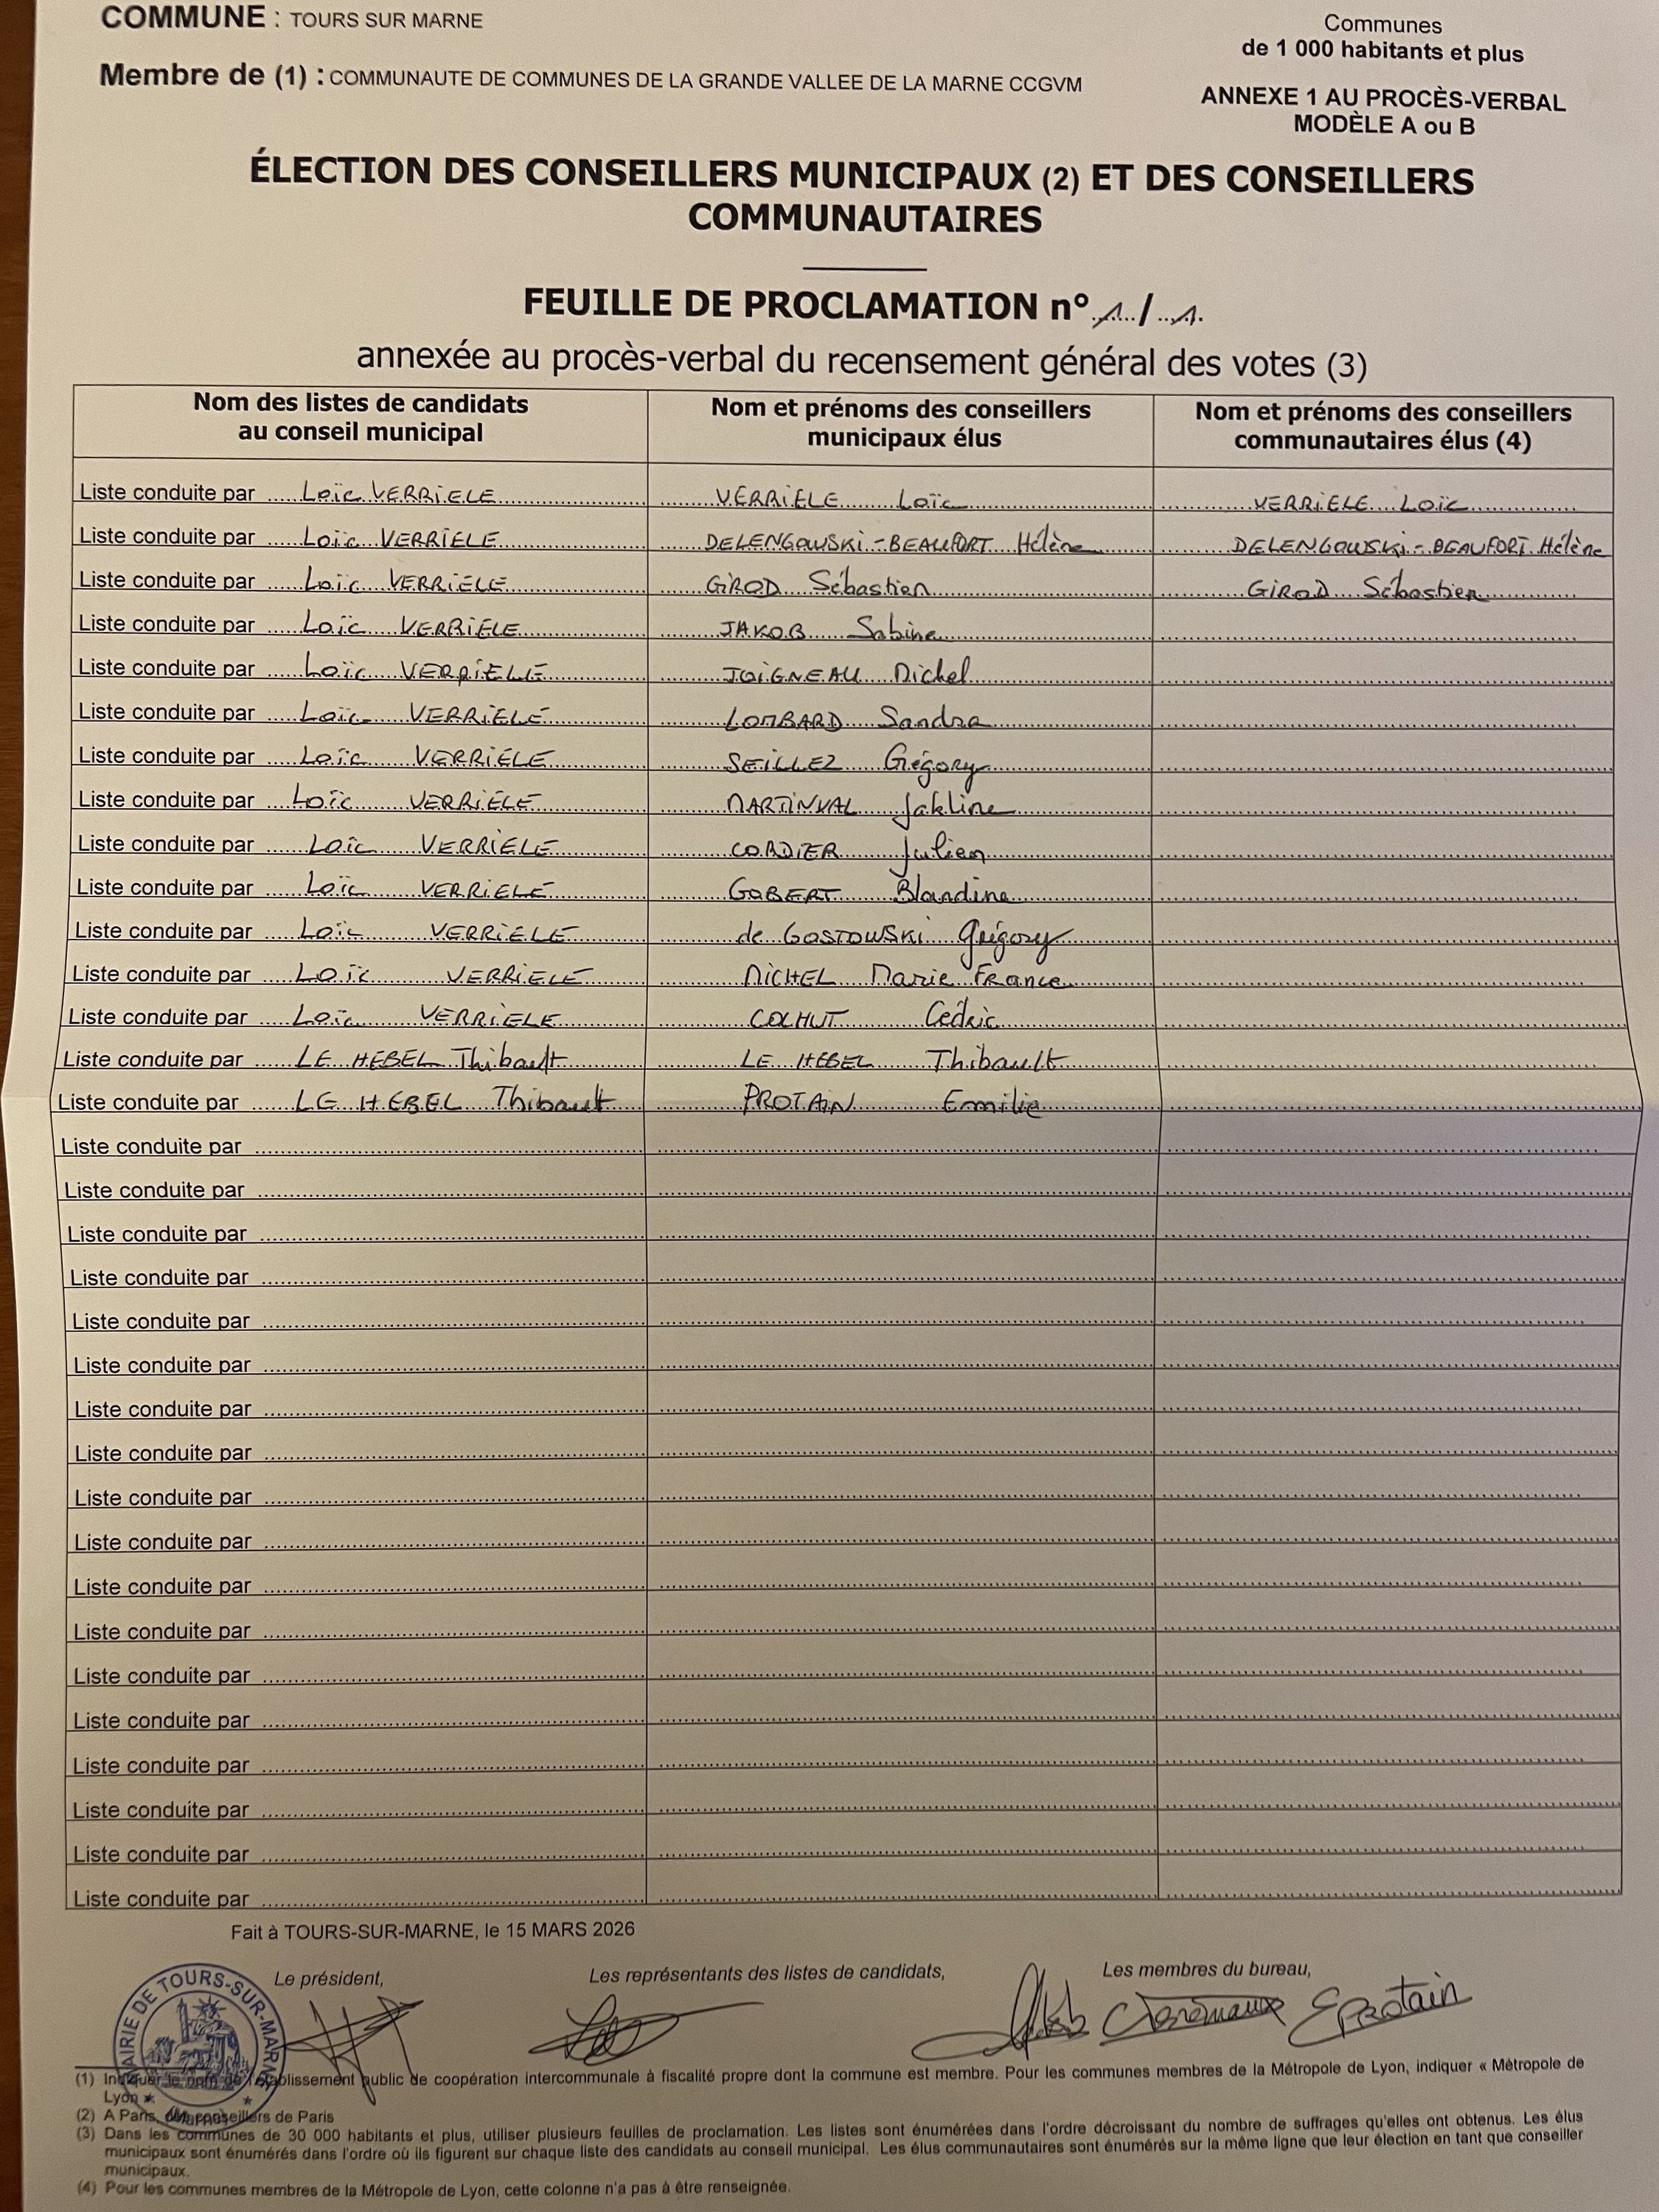 COMMUNE : TOURS SUR MARNE
Communes
de 1 000 habitants et plus
Membre de (1) : COMMUNAUTE DE COMMUNES DE LA GRANDE VALLEE DE LA MARNE CCGVM
ANNEXE 1 AU PROCÈS-VERBAL
MODÈLE A ou B
ÉLECTION DES CONSEILLERS MUNICIPAUX (2) ET DES CONSEILLERS
COMMUNAUTAIRES
FEUILLE DE PROCLAMATION n° 1 / 1
annexée au procès-verbal du recensement général des votes (3)
Nom des listes de candidats au conseil municipal | Nom et prénoms des conseillers municipaux élus | Nom et prénoms des conseillers communautaires élus (4)
Liste conduite par Loïc VERRIELE VERRIELE Loïc VERRIELE Loïc
Liste conduite par Loïc VERRIELE DELENGOWSKI-BEAUFORT Hélène DELENGOWSKI-BEAUFORT Hélène
Liste conduite par Loïc VERRIELE GIROD Sébastien GIROD Sébastien
Liste conduite par Loïc VERRIELE JAKOB Sabine
Liste conduite par Loïc VERRIELE JOIGNEAU Michel
Liste conduite par Loïc VERRIELE LOMBARD Sandra
Liste conduite par Loïc VERRIELE SEILLEZ Grégory
Liste conduite par Loïc VERRIELE MARTINVAL Jakline
Liste conduite par Loïc VERRIELE CORDIER Julien
Liste conduite par Loïc VERRIELE GOBERT Blandine
Liste conduite par Loïc VERRIELE de GOSTOWSKI Grégory
Liste conduite par Loïc VERRIELE MICHEL Marie France
Liste conduite par Loïc VERRIELE COLHUT Cédric
Liste conduite par LE HEBEL Thibault LE HEBEL Thibault
Liste conduite par LE HEBEL Thibault PROTAIN Emilie
Liste conduite par
Liste conduite par
Liste conduite par
Liste conduite par
Liste conduite par
Liste conduite par
Liste conduite par
Liste conduite par
Liste conduite par
Liste conduite par
Liste conduite par
Liste conduite par
Liste conduite par
Liste conduite par
Liste conduite par
Liste conduite par
Liste conduite par
Liste conduite par
Fait à TOURS-SUR-MARNE, le 15 MARS 2026
Le président, Les représentants des listes de candidats, Les membres du bureau,
MAIRIE DE TOURS-SUR-MARNE
EProtain
(1) Indiquer le nom de l'établissement public de coopération intercommunale à fiscalité propre dont la commune est membre. Pour les communes membres de la Métropole de Lyon, indiquer « Métropole de
Lyon »
(2) A Paris, conseillers de Paris
(3) Dans les communes de 30 000 habitants et plus, utiliser plusieurs feuilles de proclamation. Les listes sont énumérées dans l'ordre décroissant du nombre de suffrages qu'elles ont obtenus. Les élus
municipaux sont énumérés dans l'ordre où ils figurent sur chaque liste des candidats au conseil municipal. Les élus communautaires sont énumérés sur la même ligne que leur élection en tant que conseiller
municipaux.
(4) Pour les communes membres de la Métropole de Lyon, cette colonne n'a pas à être renseignée.